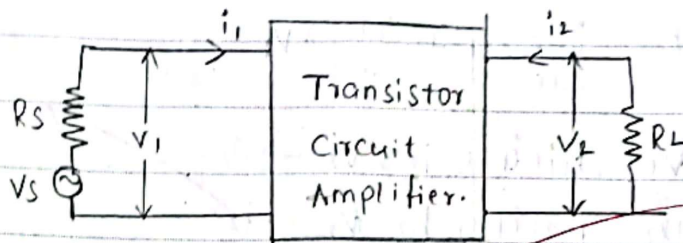 i1
i2
Transistor
Circuit
Amplifier.
RS
V1
V2
RL
VS